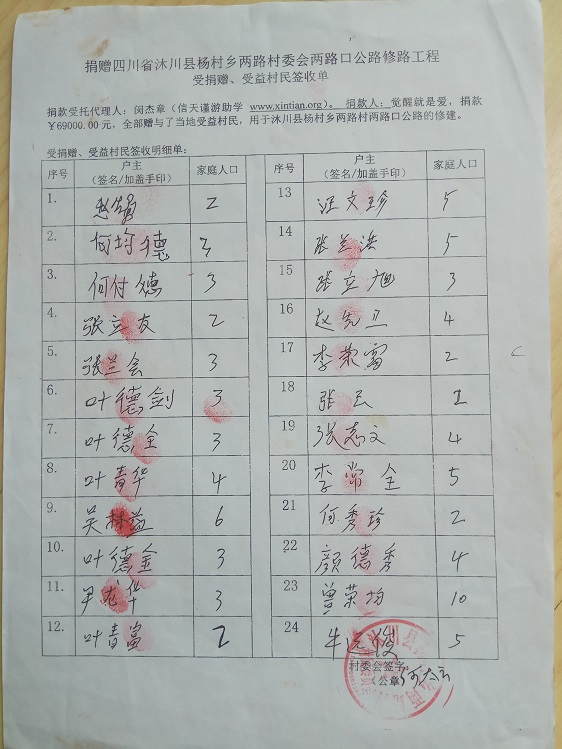 捐赠四川省沐川县杨村乡两路村委会两路口公路修路工程
受捐赠、受益村民签收单
捐款受托代理人：闵杰章（信天谨游助学 www.xintian.org）。 捐款人：觉醒就是爱，捐款
￥69000.00 元，全部赠与了当地受益村民，用于沐川县杨村乡两路村两路口公路的修建。
受捐赠、受益村民签收明细单：
序号 户主（签名/加盖手印） 家庭人口
1. 2
2. 何均德 3
3. 何付德 3
4. 张立友 2
5. 张兰会 3
6. 叶德剑 3
7. 叶德全 3
8. 叶青华 4
9. 吴村益 6
10. 叶德金 3
11. 3
12. 叶青富 2
序号 户主（签名/加盖手印） 家庭人口
13 汪文珍 5
14 张兰洪 5
15 张立旭 3
16 4
17 李荣富 2
18 张云 1
19 张志文 4
20 李常全 5
21 何秀珍 2
22 颜德秀 4
23 曾荣均 10
24 牛远俊 5
村委会签字：
（公章）